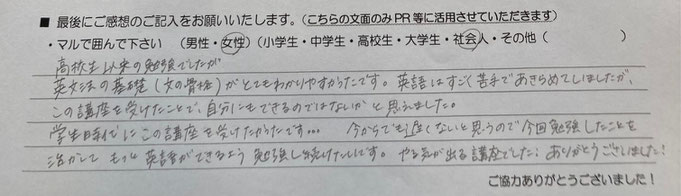 ■ 最後にご感想のご記入をお願いいたします。（こちらの文面のみPR等に活用させていただきます）
・マルで囲んで下さい （男性・女性）（小学生・中学生・高校生・大学生・社会人・その他（ ）
高校生以来の勉強でしたが
英文法の基礎（文の骨格）がとてもわかりやすかったです。英語はすごく苦手であきらめてしましたが、
この講座を受けたことで、自分にもできるのではないかと思えました。
学生時代にこの講座を受けたかったです… 今からでも遅くないと思うので今回勉強したことを
活かして もっと英語ができるよう 勉強し続けたいです。やる気が出る講座でした! ありがとうございました!
ご協力ありがとうございました！